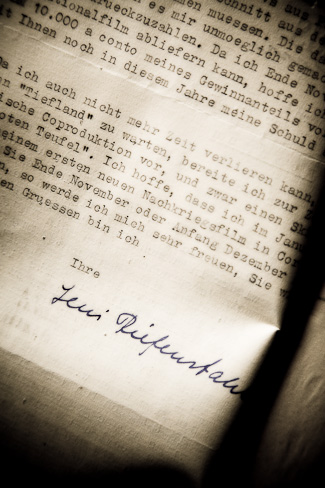 ohnitt aus de
es mir unmoeglich gemac
onalfilm abliefern kann, hoffe ich
10.000 a conto meines Gewinnanteils vo
t Ihnen noch in diesem Jahre meine Schuld
Da ich auch nicht mehr Zeit verlieren kann,
"Tiefland" zu warten, bereite ich zur
sche Coproduktion vor, und zwar einen Sk
oten Teufel". Ich hoffe, dass ich im Janu
einem ersten neuen Nachkriegsfilm in Cor
Sie Ende November oder Anfang Dezember
, so werde ich mich sehr freuen, Sie w
en Gruessen bin ich
Ihre
Leni Riefenstahl